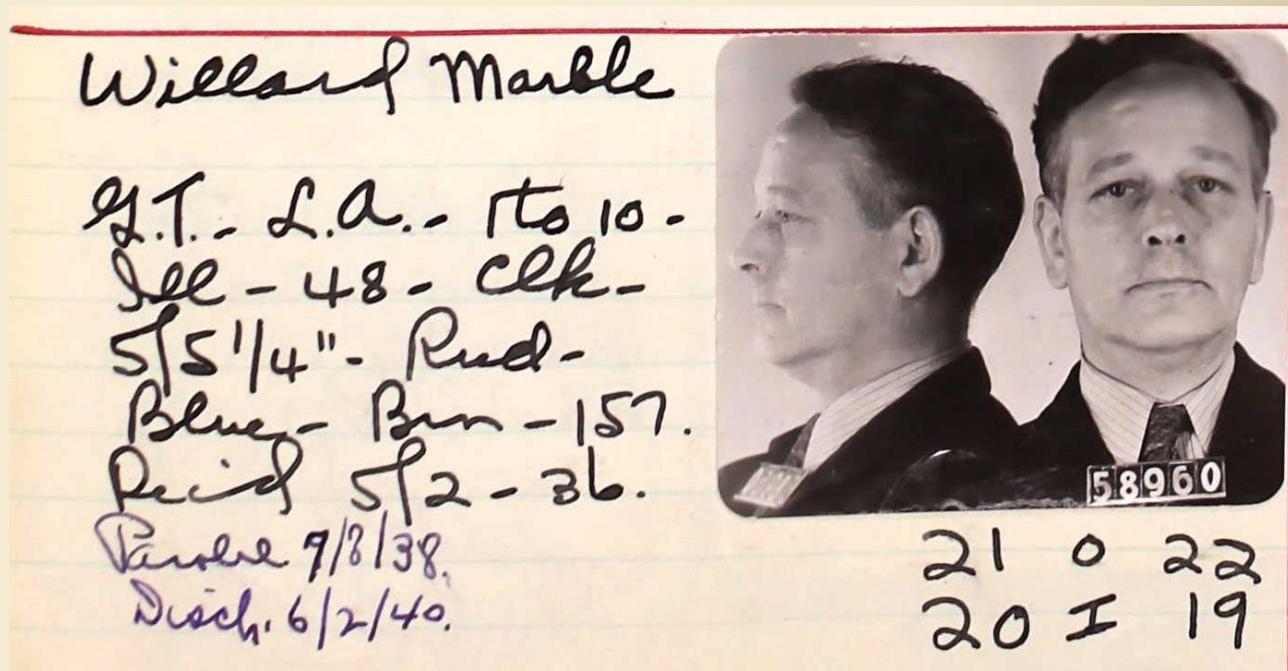 Willard Marble
G.T. - L.A. - 1 to 10 -
Ill - 48 - Clk -
5/5 1/4" - Rud -
Blue - Brn - 157.
Recd 5/2 - 36.
Parole 7/8/38.
Disch. 6/2/40.
58960
21 0 22
20 I 19